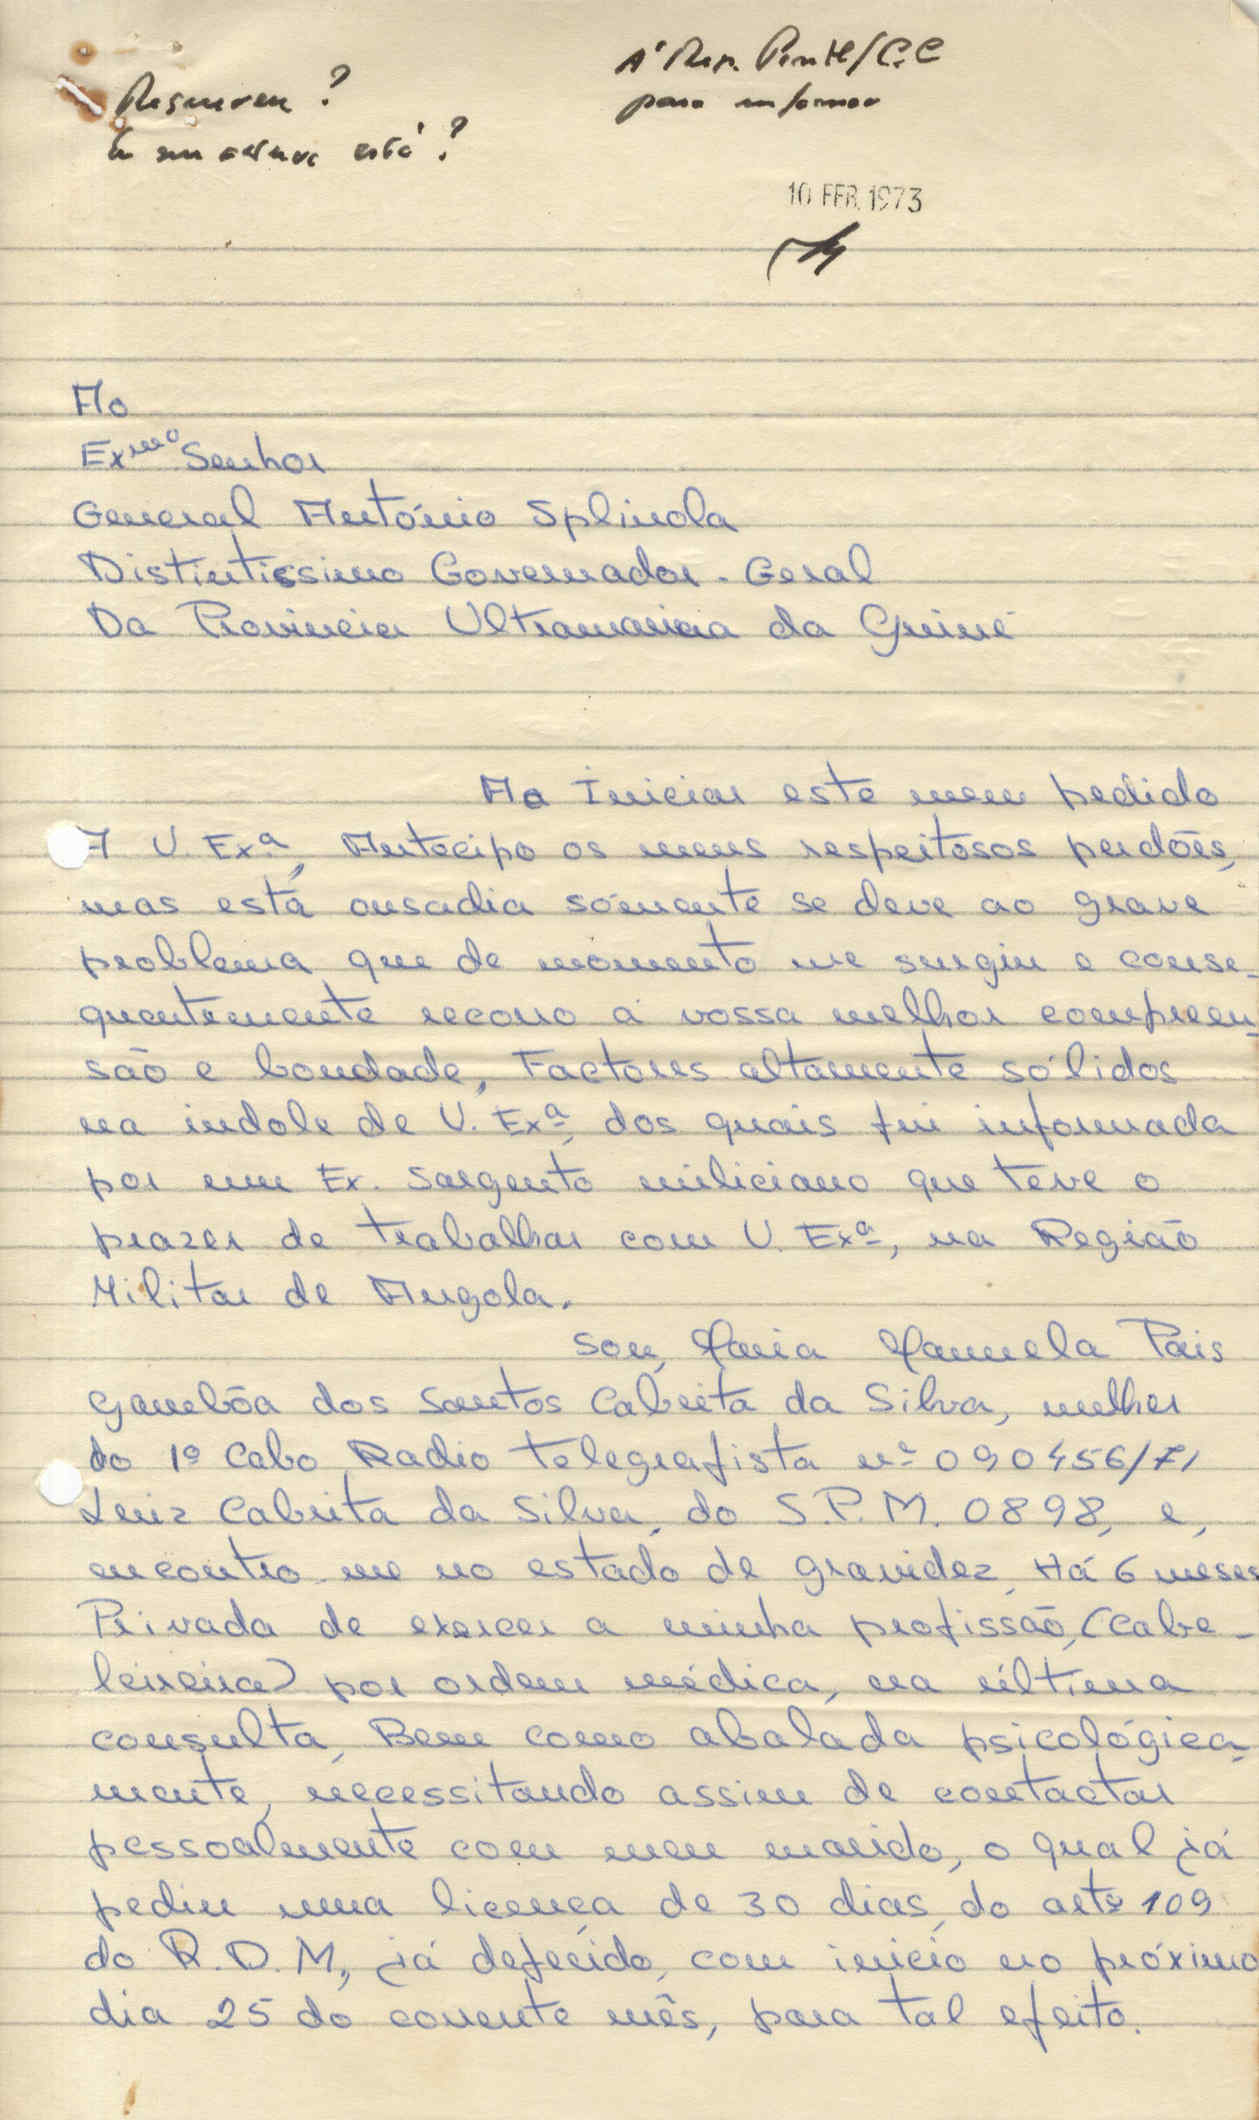 Requereu ?
Em que altura está ?
À Rep. /C.C
para informar
10 FEB. 1973
Ao
Exmo Senhor
General António Splinola
Distintissimo Governador-Geral
Da Provincia Ultramarina da Guiné
Ao Iniciar este meu pedido
A V. Exª, Antecipo os meus respeitosos perdões,
mas está ousadia sómente se deve ao grave
problema que de momento me surgiu e conse-
quentemente recorro á vossa melhor compreen-
são e bondade, Factores altamente sólidos
na indole de V. Exª, dos quais fui informada
por um Ex. Sargento miliciano que teve o
prazer de trabalhar com V. Exª, na Região
Militar de Angola.
Sou, Maria Manuela Pais
Gambôa dos Santos Cabrita da Silva, mulher
do 1º Cabo Radio Telegrafista nº 090456/71
Luiz Cabrita da Silva, do S.P.M. 0898, e,
encontro-me no estado de gravidez, Há 6 meses
Privada de exercer a minha profissão, (Cabe-
leireira) por ordem médica, na última
consulta, Bem como abalada psicológica-
mente, necessitando assim de contactar
pessoalmente com meu marido, o qual já
pediu uma licença de 30 dias, do artº 109
do R.D.M, já deferido, com inicio no próximo
dia 25 do corrente mês, para tal efeito.